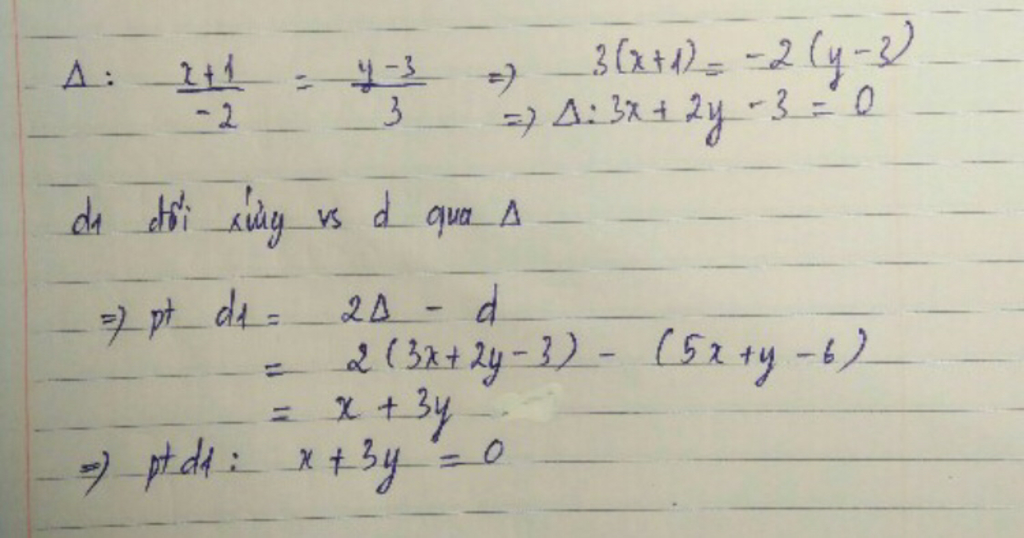 Δ: (x+1)/-2 = (y-3)/3 => 3(x+1) = -2(y-3)
=> Δ: 3x + 2y - 3 = 0
d1 đối xứng vs d qua Δ
=> pt d1 = 2Δ - d
= 2(3x+2y-3) - (5x+y-6)
= x + 3y
=> pt d1: x + 3y = 0